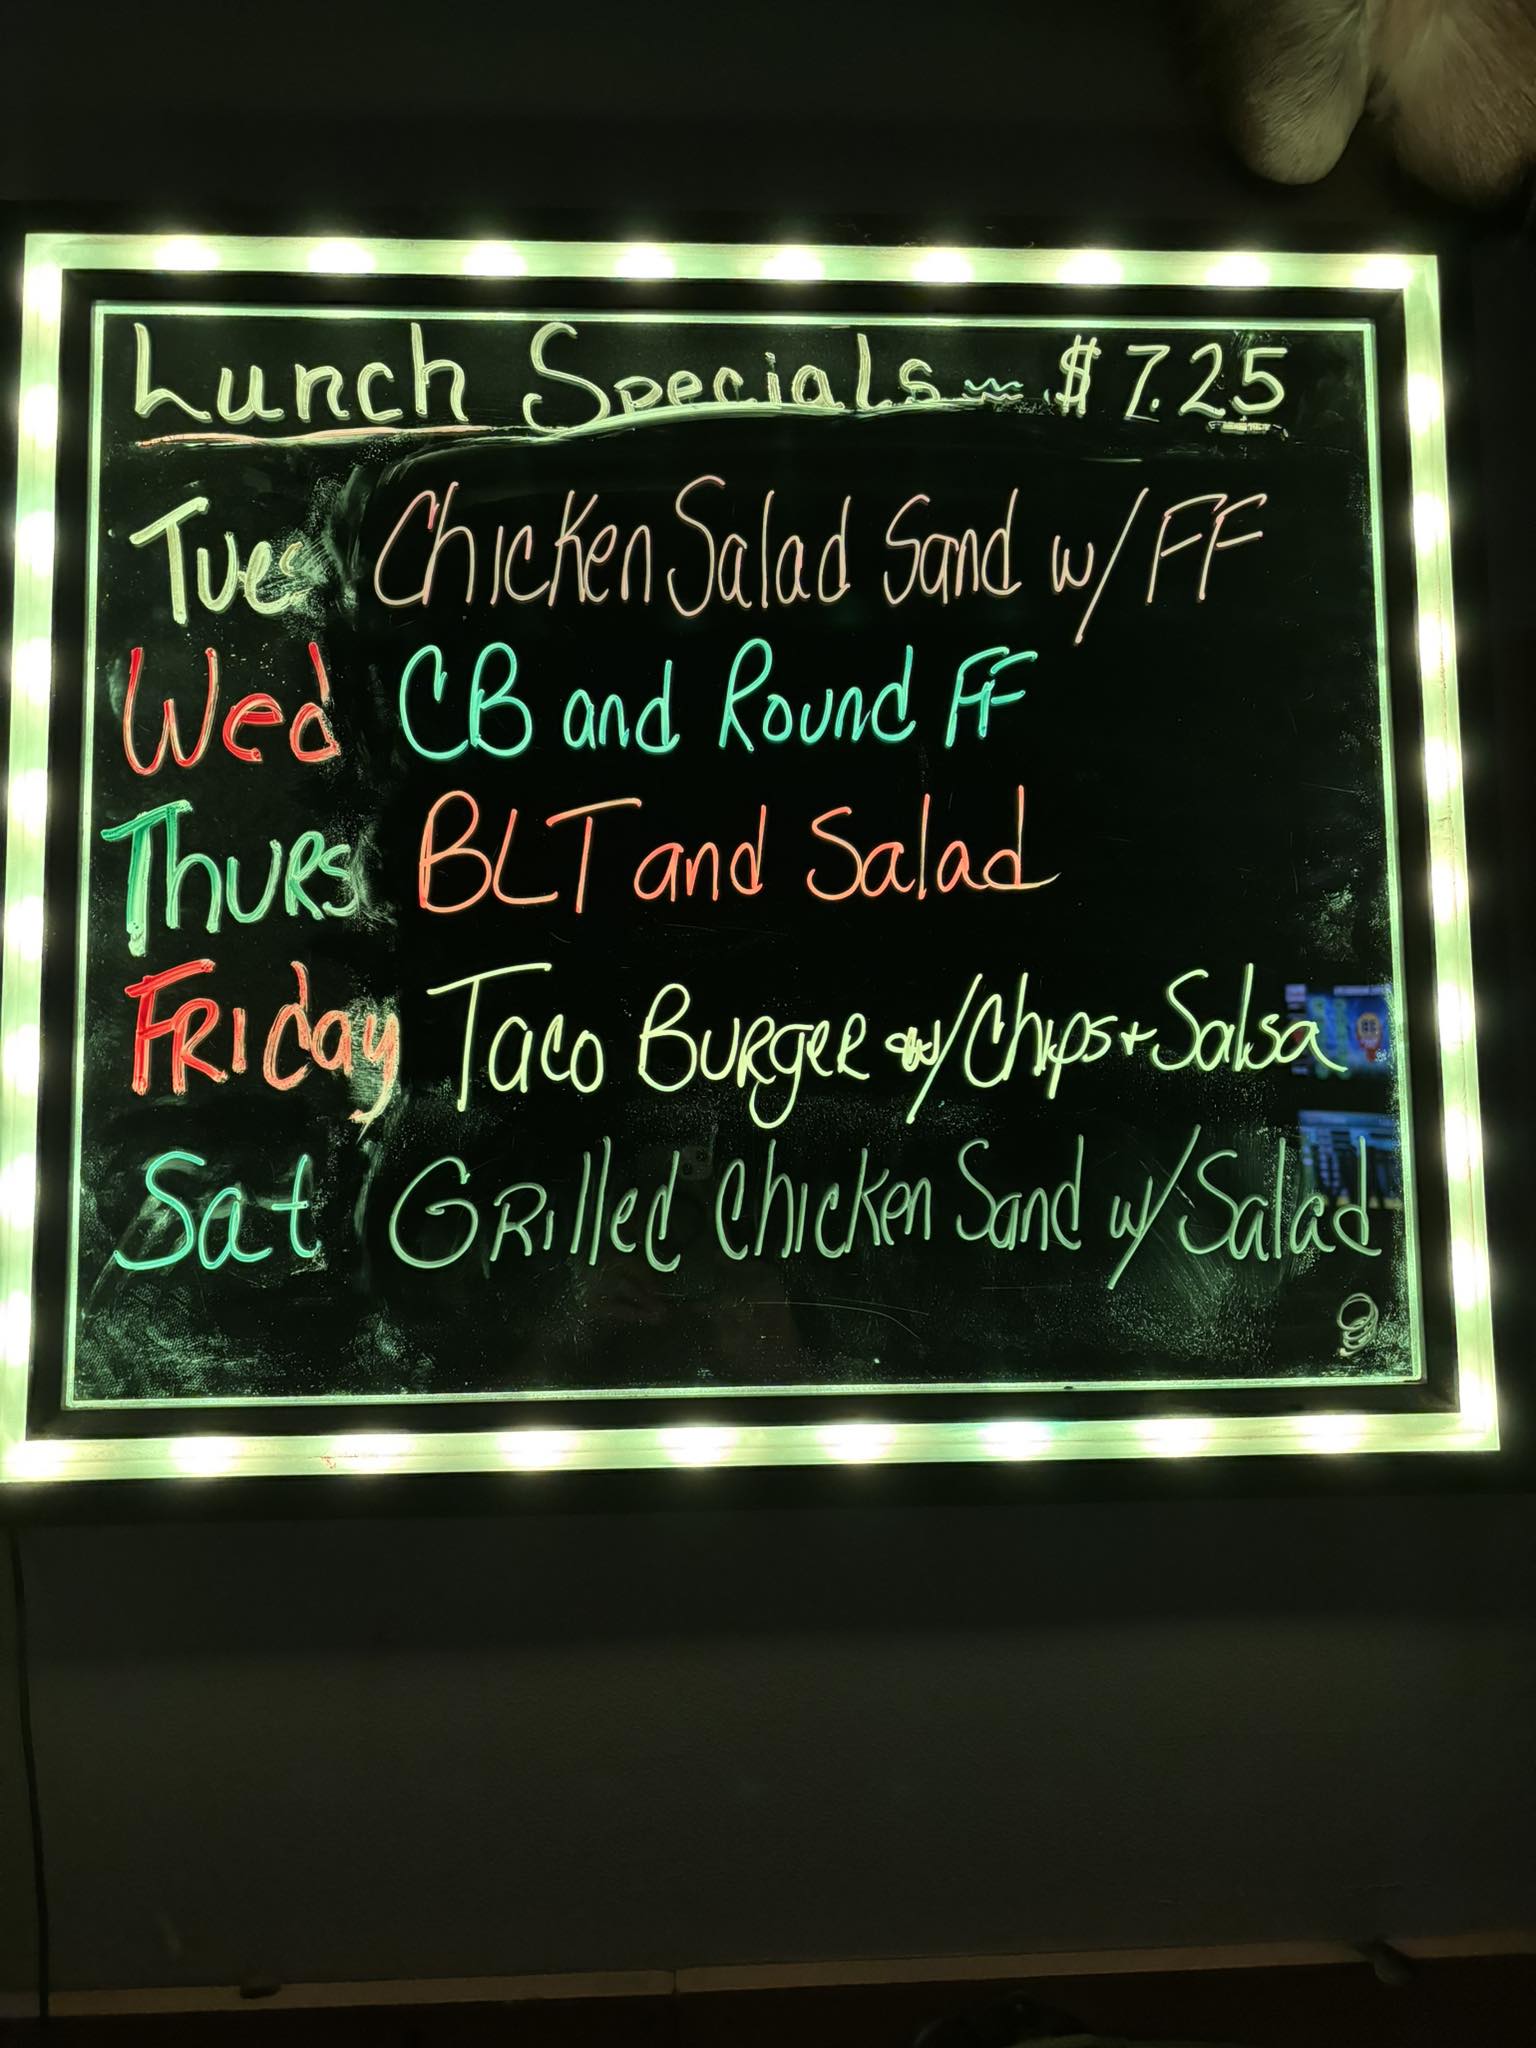 Lunch Specials ~ $7.25
Tues Chicken Salad Sand w/ FF
Wed CB and Round FF
Thurs BLT and Salad
Friday Taco Burger w/ Chips + Salsa
Sat Grilled Chicken Sand w/ Salad